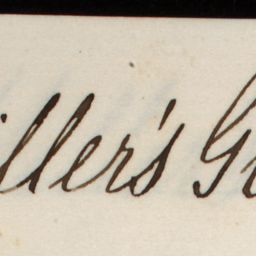 iller's G